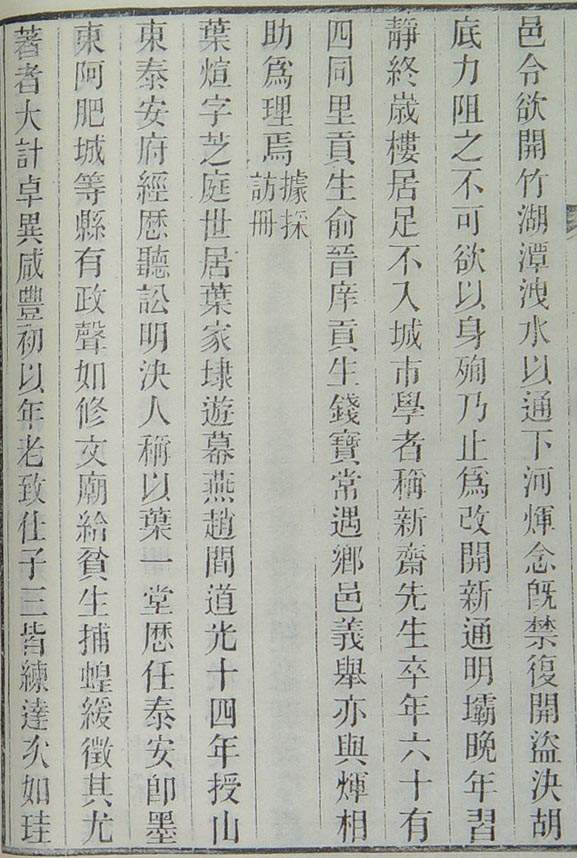 邑令欲開竹湖潭洩水以通下河煇念旣禁復開盜決胡
底力阻之不可欲以身殉乃止爲改開新通明壩晚年習
靜終歲樓居足不入城市學者稱新齋先生卒年六十有
四同里貢生俞晉庠貢生錢寶常遇鄉邑義舉亦與煇相
助爲理焉據採訪冊
葉煊字芝庭世居葉家埭遊幕燕趙間道光十四年授山
東泰安府經歷聽訟明決人稱以葉一堂歷任泰安卽墨
東阿肥城等縣有政聲如修文廟給貧生捕蝗緩徵其尤
著者大計卓異咸豐初以年老致仕子三皆練達次如珪